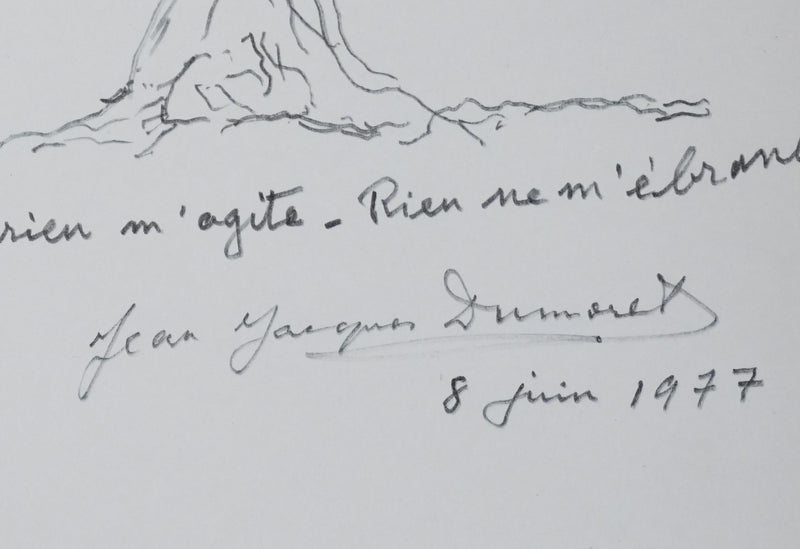 rien m'agite - Rien ne m'ébranl
Jean Jacques Dumoret
8 juin 1977